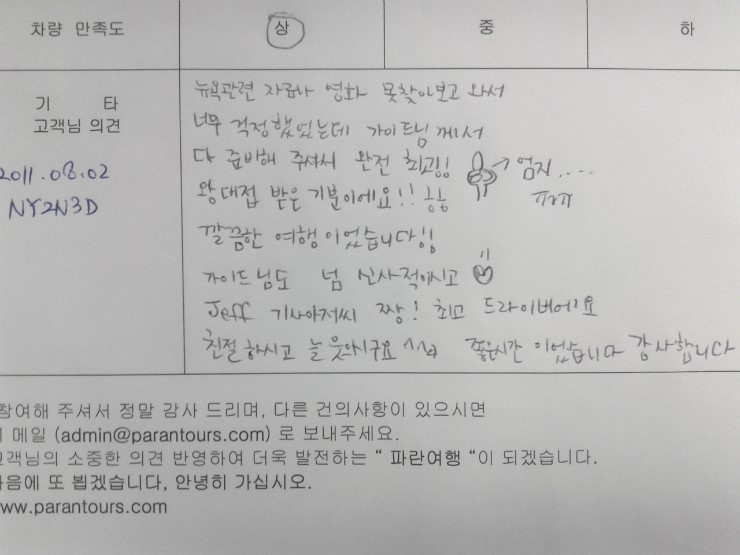 차량 만족도 상 중 하
기 타
고객님 의견
2011.08.02
NY2N3D
뉴욕관련 자료나 영화 못찾아보고 와서
너무 걱정했었는데 가이드님께서
다 준비해 주셔서 완전 최고!! → 엄지....
왕대접 받은 기분이에요!! ㅎㅎ ㅠㅠ
깔끔한 여행이었습니다!!
가이드님도 넘 신사적이시고
Jeff 기사아저씨 짱! 최고 드라이버에요
친절하시고 늘 웃으시구요 ^^ 좋은시간이었습니다 감사합니다
참여해 주셔서 정말 감사 드리며, 다른 건의사항이 있으시면
메일 (admin@parantours.com) 로 보내주세요.
고객님의 소중한 의견 반영하여 더욱 발전하는 “ 파란여행 “이 되겠습니다.
다음에 또 뵙겠습니다, 안녕히 가십시오.
www.parantours.com